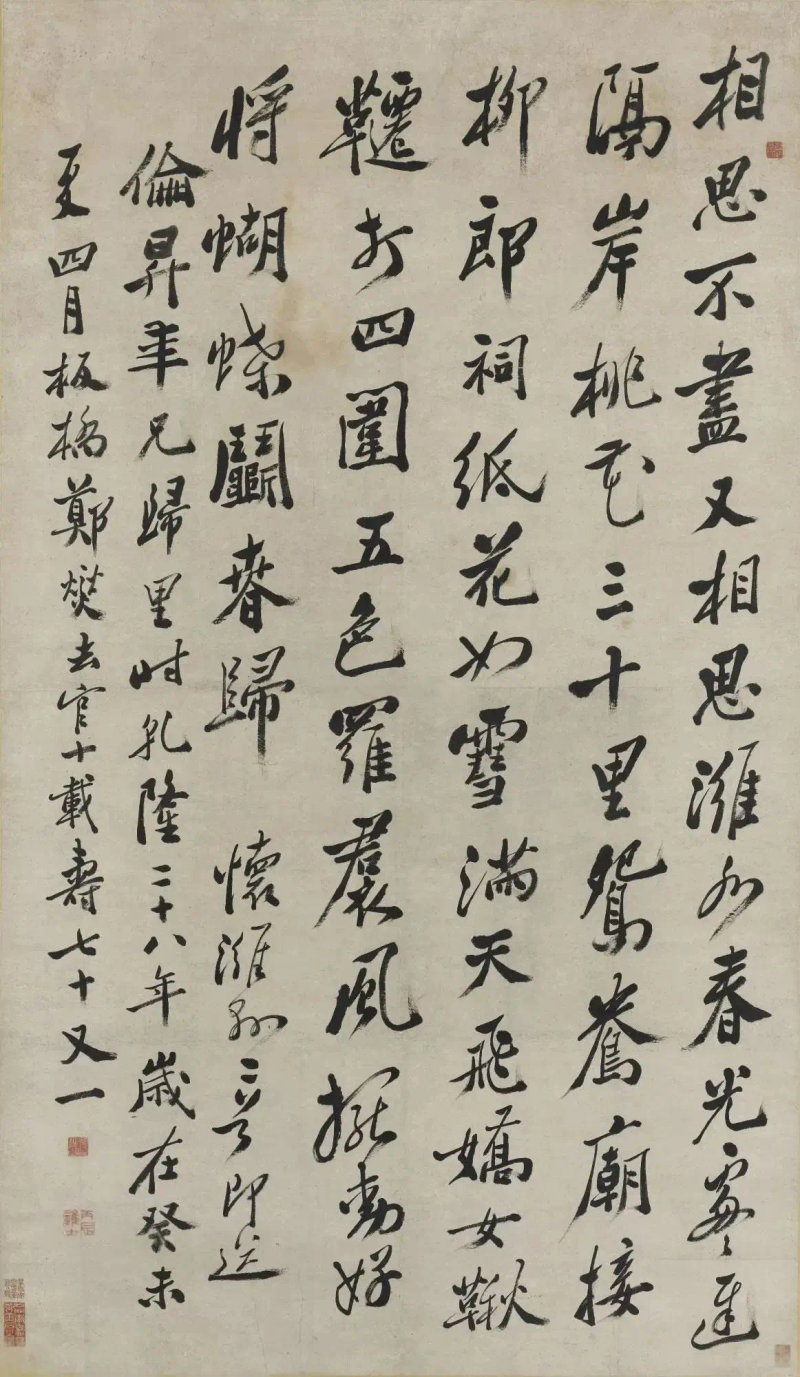 相思不盡又相思濰水春光處處遲
隔岸桃花三十里鴛鴦廟接
柳郎祠紙花如雪滿天飛嬌女鞦
韆打四圍五色羅裙風擺動好
將蝴蝶鬬春歸 懷濰縣二首即送
倫昇年兄歸里時乾隆二十八年歲在癸未
夏四月板橋鄭燮去官十載壽七十又一